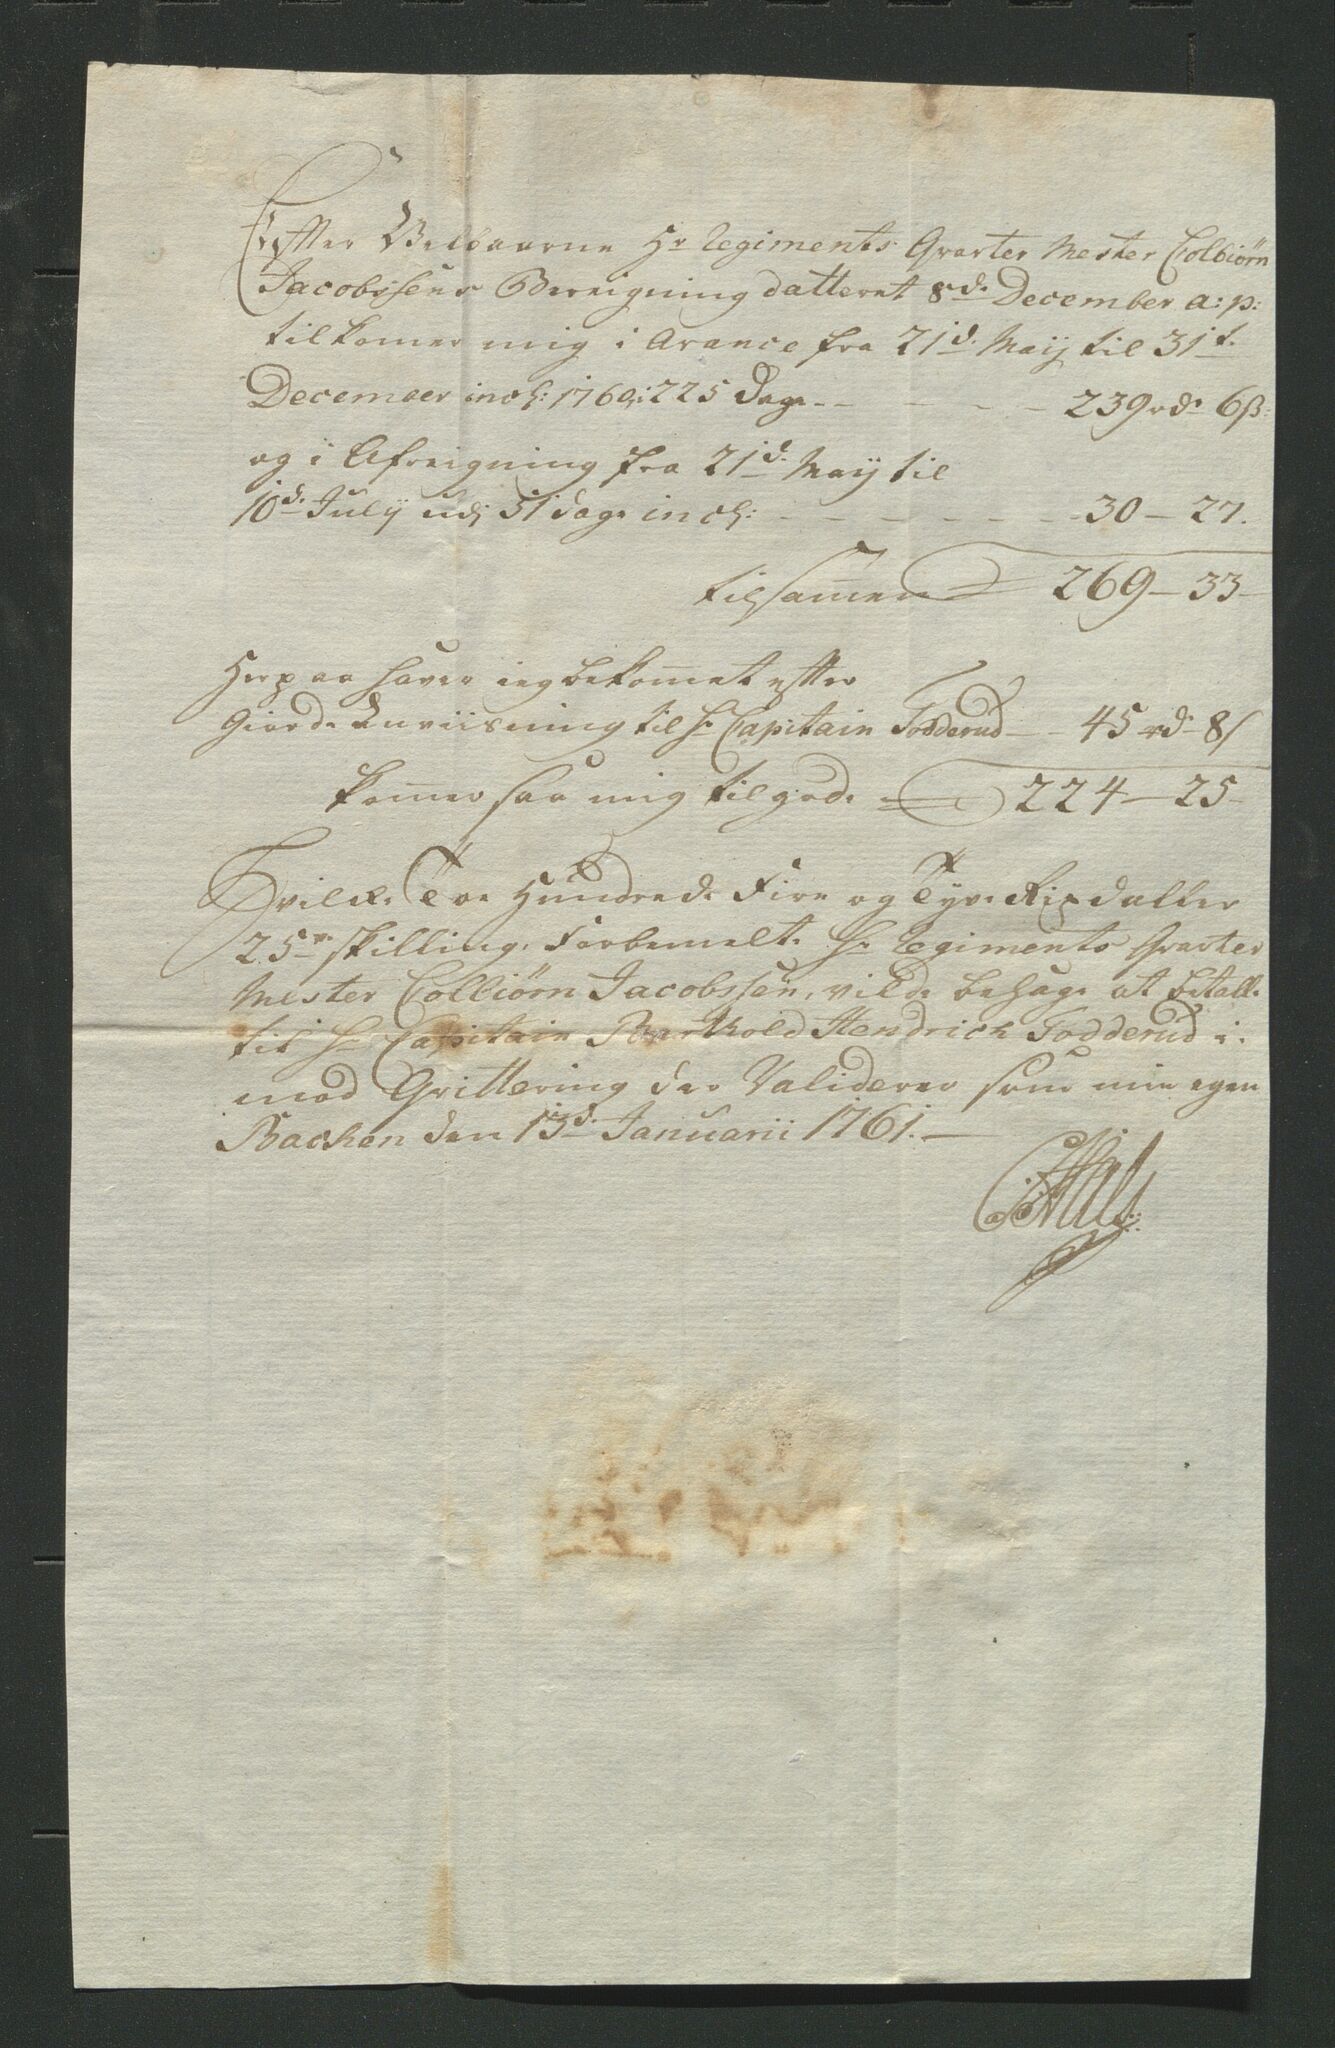 Efter Velbaarne Hr Regiments Qvarter Mester Colbiørn
Jacobssens Bereigning datteret 8de December a: p:
tilkomer mig i Avance fra 21d Maij til 31t
December incl: 1760, 225 Dage - - - - 239 rd 6 ß:
og i Afreigning fra 21d Maij til
10d July udj 51 dage incl: - - - - - - - 30 - 27.
tilsamen 269 - 33 -
Herpaa haver ieg bekomet efter
Giorde Anviisning til Hr Capitain Todderud - 45 rd 8 ß
komer saa mig tilgode 224 - 25 -
Hvilke Toe Hundrede Fire og Tyve Rixdaller
25ve skilling, Forbemelte Hr Regiments Qvarter
Mester Colbiørn Jacobssen, vilde behage at betalle
til Hr Capitain Barthold Hendrich Todderud i
mod Qvittering der Validerer som min egen
Bachen den 13d Januarii 1761. -